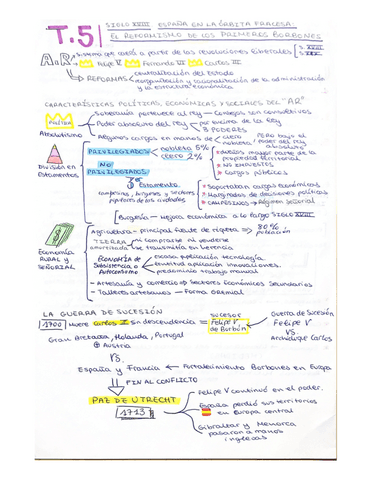 T.5
SIGLO XVIII: ESPAÑA EN LA ÓRBITA FRACESA:
EL REFORMISMO DE LOS PRIMEROS BORBONES
A.R → sistema que cayó a partir de las revoluciones liberales S.XVIII S.XIX
Felipe V Fernando VI Carlos III
→ REFORMAS centralización del estado
organización y racionalización de la administración
y la estructura económica
CARACTERÍSTICAS POLÍTICAS, ECONÓMICAS Y SOCIALES DEL "AR"
Soberanía pertenecía al rey → Consejos son consultivos
POLÍTICA
Poder absoluto del rey → por encima de la ley
3 PODERES
Absolutismo
Algunos cargos en manos de clero nobleza
PERO bajo el poder del rey absoluto
PRIVILEGIADOS nobleza 5%
clero 2%
dueños mayor parte de la propiedad territorial
NO IMPUESTOS
Cargos públicos
División en Estamentos
NO PRIVILEGIADOS
3 Estamento
campesinos, burgueses y sectores populares de las ciudades
Soportaban cargas económicas
Marginados de decisiones políticas
CAMPESINOS → Régimen señorial
Burgesía → mejora económica a lo largo SIGLO XVIII
Agricultura - principal fuente de riqueza ⇒ 80% población
TIERRA amortizada ni comprarse ni venderse
se transmitía en herencia
Economía RURAL Y SEÑORIAL
ECONOMÍA DE Subsistencia o Autoconsumo
escasa aplicación tecnología
limitada aplicación innovaciones
predominio trabajo manual
- Artesanía y comercio ⇒ Sectores Económicos Secundarios
- Talleres artesanos - Forma Gremial
LA GUERRA DE SUCESIÓN
1700 muere Carlos II Sin descendencia = sucesor Felipe V, de Borbón
Guerra de Sucesión
Felipe V
VS.
Archiduque Carlos
Gran Bretaña, Holanda, Portugal
Austria
VS.
España y Francia ← Fortalecimiento Borbones en Europa
FIN AL CONFLICTO
PAZ DE UTRECHT
1713
Felipe V continuó en el poder.
España perdió sus territorios
en Europa central
Gibraltar y Menorca
pasaron a manos
inglesas